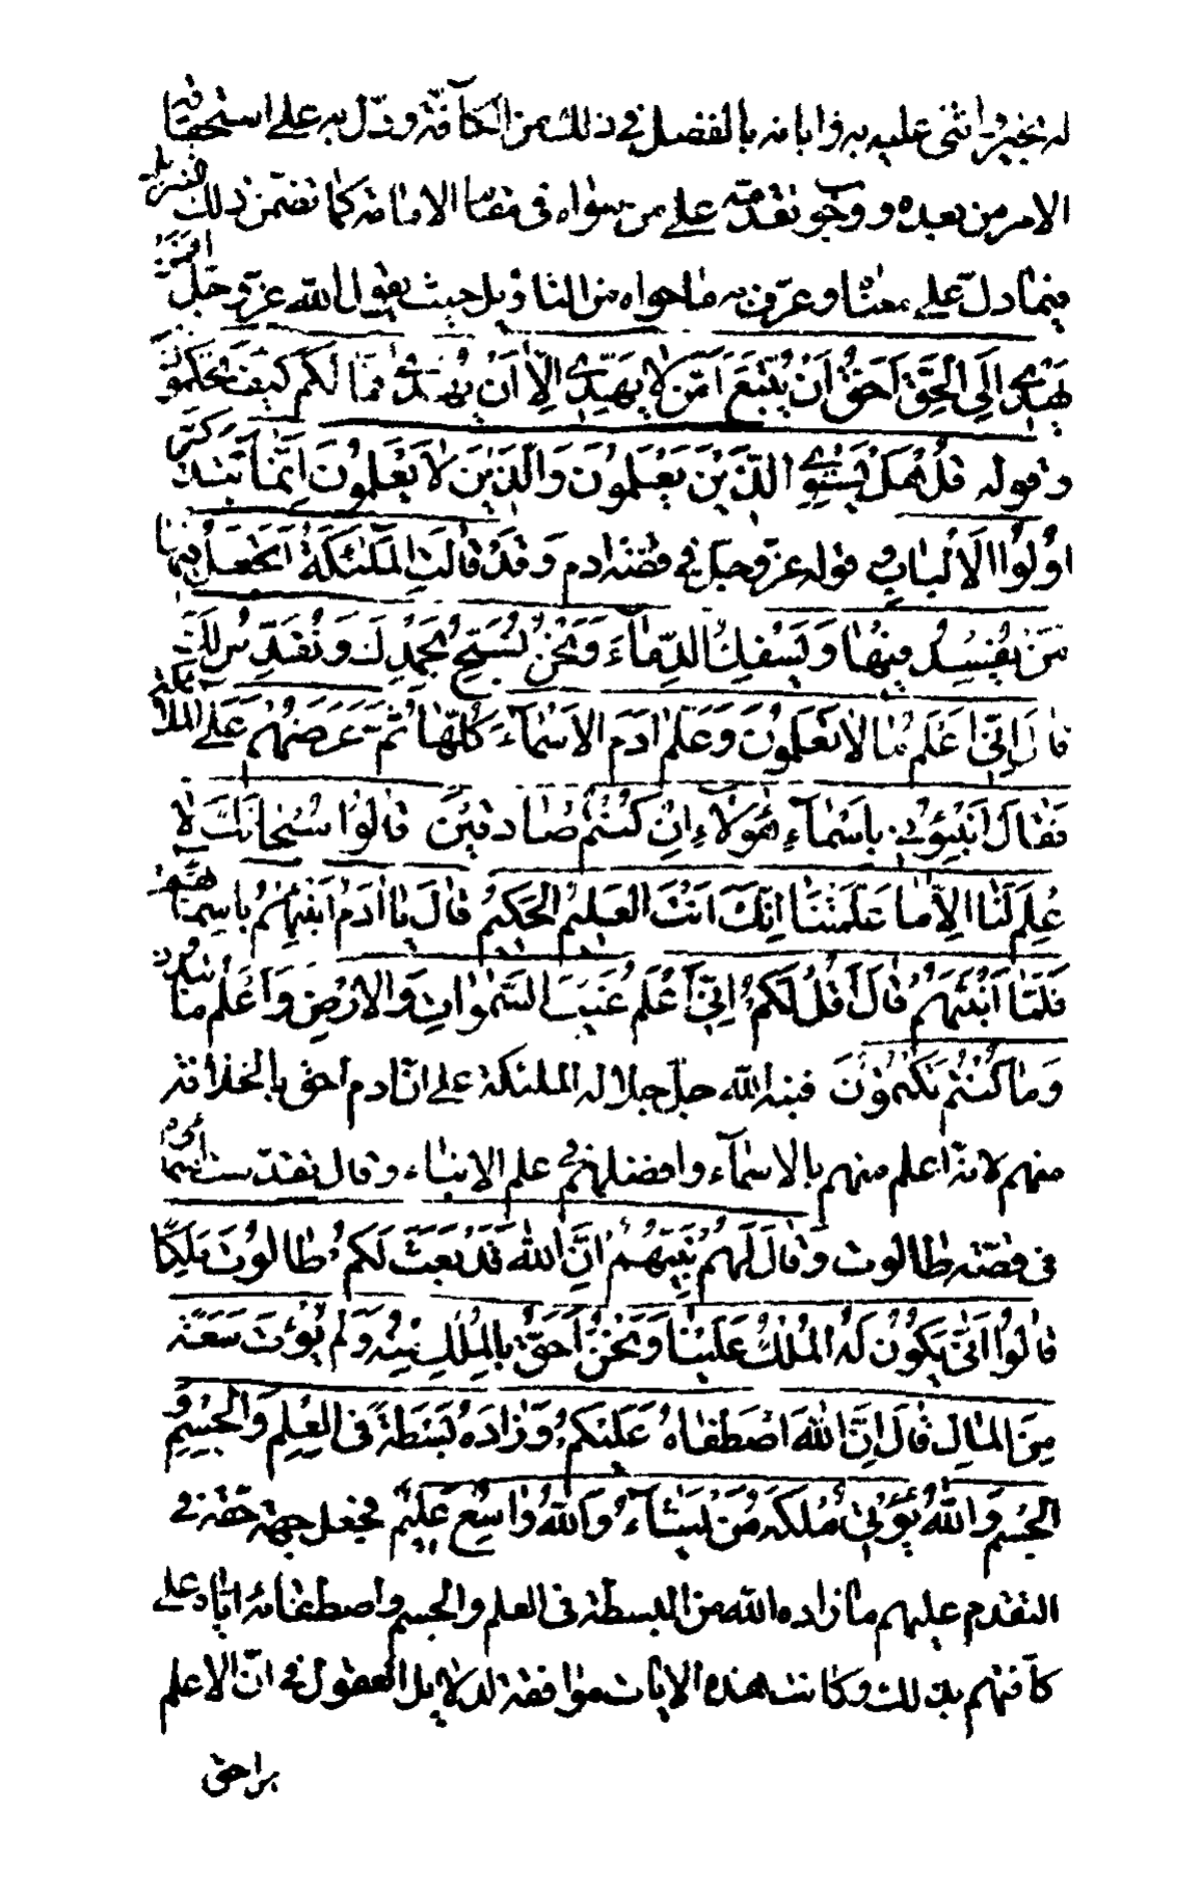 له بخبر اثنى عليه به فابانه بالفضل في ذلك من الكآفّة ودّل به على استحقاقه
الامر من بعده ووجوب تقدمّه على من سواه في مقام الامامة كما تضمّن ذلك التنزيل
فيما دلّ على معناه وعرّف به ما حواه من التأويل حيث يقول الله عزّ وجلّ افمن
يَهْدِي اِلَى الْحَقِّ اَحَقُّ اَنْ يُتَّبَعَ اَمَّنْ لا يَهِدِّي اِلاّ اَنْ يُهْدى فَمٰا لَكُمْ كَيْفَ تَحْكُمُونَ
وقوله قُلْ هَلْ يَسْتَوِي الَّذينَ يَعْلَمُونَ وَالَّذينَ لاٰ يَعْلَمُونَ اِنَّمٰا يَتَذَكَّرُ
اوُلُوا الْاَلْبٰابِ وفي قوله عزّ وجل في قصّة ادم وَقَدْ قٰالَتِ الْمَلٰئِكَةُ اَتَجْعَلُ فيهٰا
مَنْ يُفْسِدُ فيهٰا وَيَسْفِكُ الدِّمٰآءَ وَنَحْنُ نُسَبِّحُ بِحَمْدِكَ وَنُقَدِّسُ لَكَ
قٰالَ اِنّي اَعْلَمُ مٰا لاٰ تَعْلَمُونَ وَعَلَّمَ ادَمَ الاَسْمٰآءَ كُلَّهٰا ثُمَّ عَرَضَهُمْ عَلَى الملائكة
فَقٰالَ اَنْبِئُوني بِاَسْمٰآءِ هٰؤُلاٰءِ اِنْ كُنْتُمْ صٰادِقينَ قٰالُوا سُبْحٰانَكَ لاٰ
عِلْمَ لَنٰا اِلاّ مٰا عَلَّمْتَنٰا اِنَّكَ اَنْتَ الْعَليمُ الْحَكيمُ قٰالَ يٰا ادَمُ اَنْبِئْهُمْ بِاَسْمٰائِهِمْ
فَلَمّٰا اَنْبَئَهُمْ قٰالَ اَقُلْ لَكُمْ اِنّي اَعْلَمُ غَيْبَ السَّمٰوٰاتِ وَالاَرْضِ وَاَعْلَمُ مٰا تبدون
وَمٰا كُنْتُمْ تَكْتُمُونَ فنبه الله جلّ جلاله الملئكة على انّ ادم احق بالخلافة
منهم لانه اعلم منهم بالاسمآء وافضلهم في علم الانباء وقال تقدّست اسماؤه
في قصّة طالوت وَقٰالَ لَهُمْ نَبِيُّهُمْ اِنَّ اللهَ قَدْ بَعَثَ لَكُمْ طٰالُوتَ مَلِكًا
قٰالُوا اَنّٰى يَكُونُ لَهُ الْمُلْكُ عَلَيْنٰا وَنَحْنُ اَحَقُّ بِالْمُلْكِ مِنْهُ وَلَمْ يُؤْتَ سَعَةً
مِنَ الْمٰالِ قٰالَ اِنَّ اللهَ اصْطَفٰاهُ عَلَيْكُمْ وَزٰادَهُ بَسْطَةً فِي الْعِلْمِ وَالْجِسْمِ و
الجسم وَاللهُ يُؤْتي مُلْكَهُ مَنْ يَشٰآءُ وَاللهُ وٰاسِعٌ عَليمٌ فجعل جهة حقه في
التقدم عليهم ما زاده الله من البسطة في العلم والجسم واصطفائه اياه على
كآفتهم بذلك وكانت هذه الايات موافقة لدلايل العقول في انّ الاعلم
هو احق